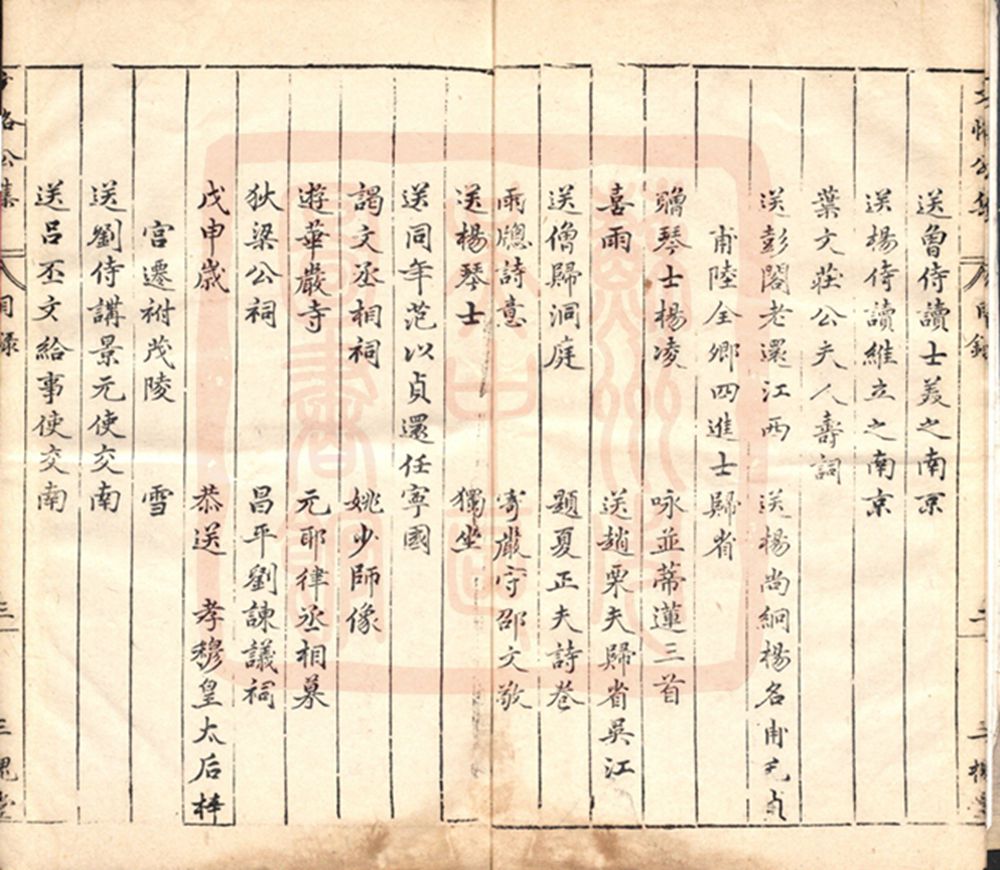 送魯侍讀士美之南京
送楊侍讀維立之南京
葉文莊公夫人壽詞
送彭閣老還江西 送楊尚絅楊名甫毛貞
甫陸全卿四進士歸省
贈琴士楊凌 咏並蒂蓮三首
喜雨 送趙栗夫歸省吳江
送僧歸洞庭 題夏正夫詩卷
雨牕詩意 寄嚴守邵文敬
送楊琴士 獨坐
送同年范以貞還任寧國
謁文丞相祠 姚少師像
遊華嚴寺 元耶律丞相墓
狄梁公祠 昌平劉諫議祠
戊申歲 恭送 孝穆皇太后梓
宮遷祔茂陵 雪
送劉侍講景元使交南
送呂丕文給事使交南